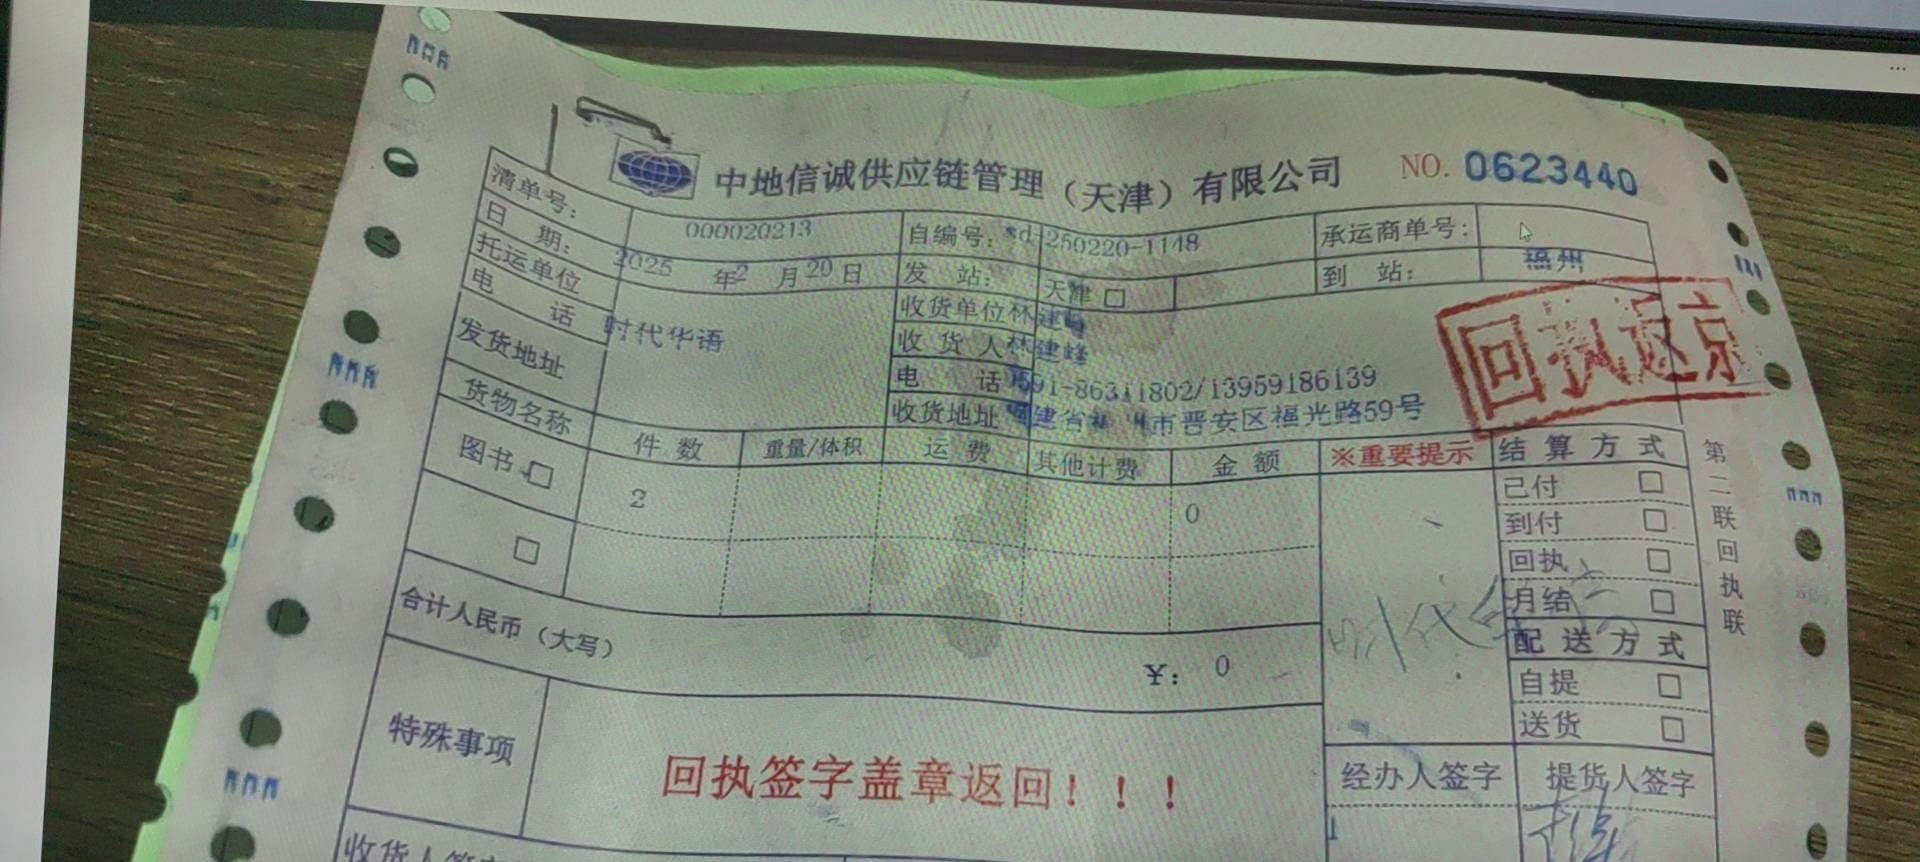 中地信诚供应链管理（天津）有限公司 NO. 0623440
清单号： 000020213 自编号：sd-250220-1148 承运商单号：
日 期： 2025 年2 月20日 发 站： 天津 □ 到 站： 福州
托运单位 时代华语 收货单位 林建峰
电 话 收 货 人 林建峰
回执返京
发货地址 电 话 0591-86311802/13959186139
收货地址 福建省福州市晋安区福光路59号
货物名称 件 数 重量/体积 运 费 其他计费 金 额 ※重要提示 结 算 方 式
图书 □ 2 0 已付 □
到付 □
□ 回执 □
月结 □
合计人民币（大写） ¥： 0 时代 配 送 方 式
自提 □
送货 □
特殊事项 回执签字盖章返回！！！ 经办人签字 提货人签字
第二联回执联